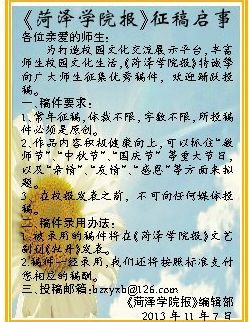 《菏泽学院报》征稿启事
各位亲爱的师生：
为打造校园文化交流展示平台，丰富
师生校园文化生活，《菏泽学院报》特诚挚
向广大师生征集优秀稿件，欢迎踊跃投
稿。
一、稿件要求：
1、常年征稿，体裁不限，字数不限，所投稿
件必须是原创。
2、作品内容积极健康向上，可以抓住“教
师节”、“中秋节”、“国庆节”等重大节日，
以及“亲情”、“友情”、“感恩”等方面来拟
题。
3、在校报发表之前，不可向任何媒体投
稿。
二、稿件录用办法：
1、被录用的稿件将在《菏泽学院报》文艺
副刊《牡丹》发表。
2、稿件一经录用，我们还将按照标准支付
您相应的稿酬。
三、投稿邮箱：hzxyxb@126.com
《菏泽学院报》编辑部
2013年11月7日